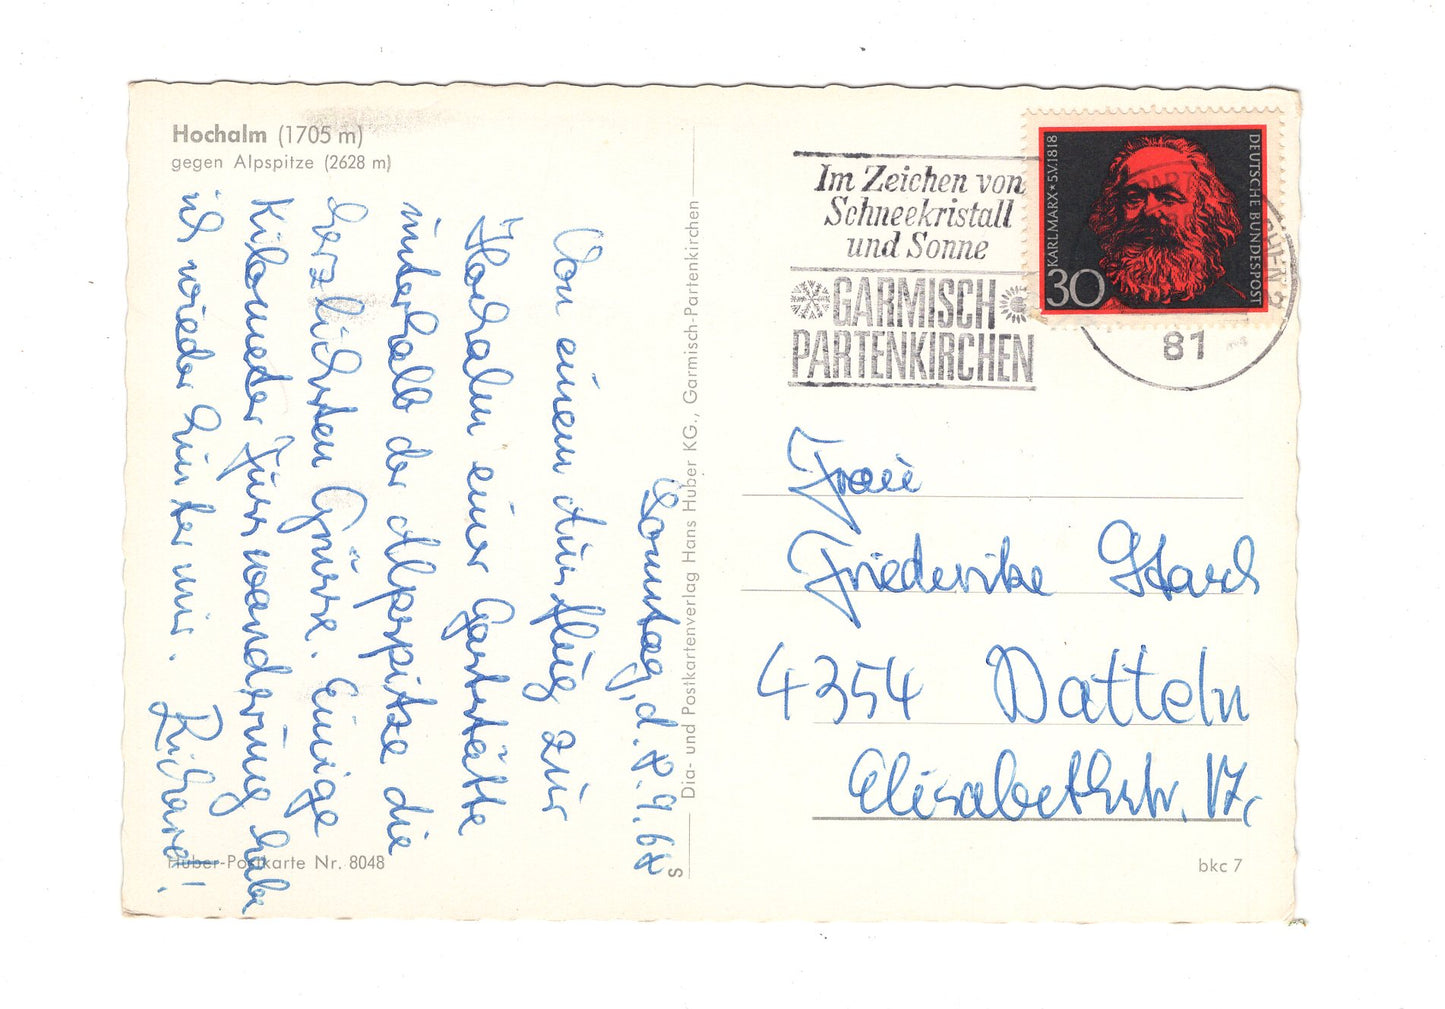 Hochalm (1705 m)
gegen Alpspitze (2628 m)
Sonntag, d. 8.9.68
Von einem Ausflug zur
Hochalm einer Gaststätte
unterhalb der Alpspitze die
herzlichsten Grüsse. Einige
Kilometer Fusswanderung habe
ich wieder hinter mir.
Richard!
Huber-Postkarte Nr. 8048
Dia- und Postkartenverlag Hans Huber KG., Garmisch-Partenkirchen
S
Im Zeichen von
Schneekristall
und Sonne
GARMISCH
PARTENKIRCHEN
81
KARL MARX * 5.V.1818
DEUTSCHE BUNDESPOST
30
Frau
Friederike Stach
4354 Datteln
Elisabethstr. 17
bkc 7